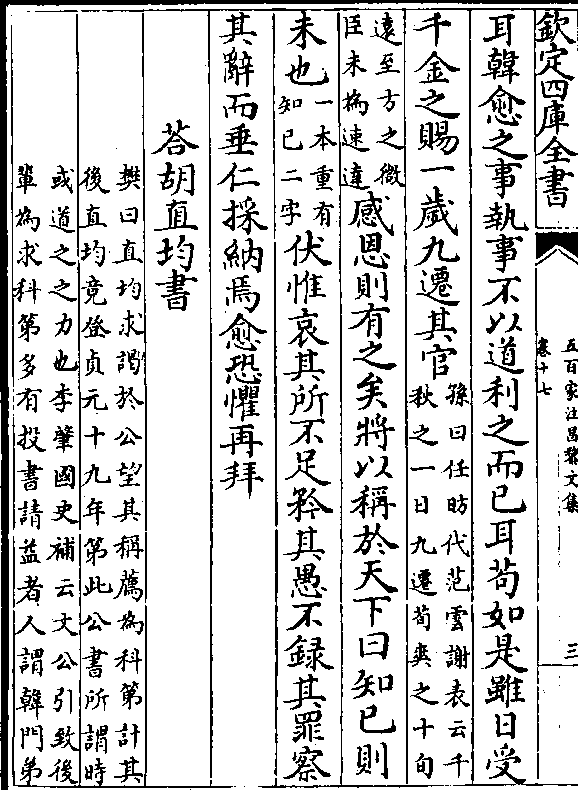 欽定四庫全書
五百家注昌黎文集
卷十七
三
耳韓愈之事執事不以道利之而已耳苟如是雖日受
千金之賜一歲九遷其官
孫曰任昉代范雲謝表云千
秋之一日九遷荀爽之十旬
遠至方之微
臣未為速達
感恩則有之矣將以稱於天下曰知己則
未也
一本重有
知己二字
伏惟哀其所不足矜其愚不録其罪察
其辭而垂仁採納焉愈恐懼再拜
荅胡直均書
樊曰直均求謁於公望其稱薦為科第計其
後直均竟登貞元十九年第此公書所謂時
或道之之力也李肇國史補云文公引致後
輩為求科第多有投書請益者人謂韓門弟